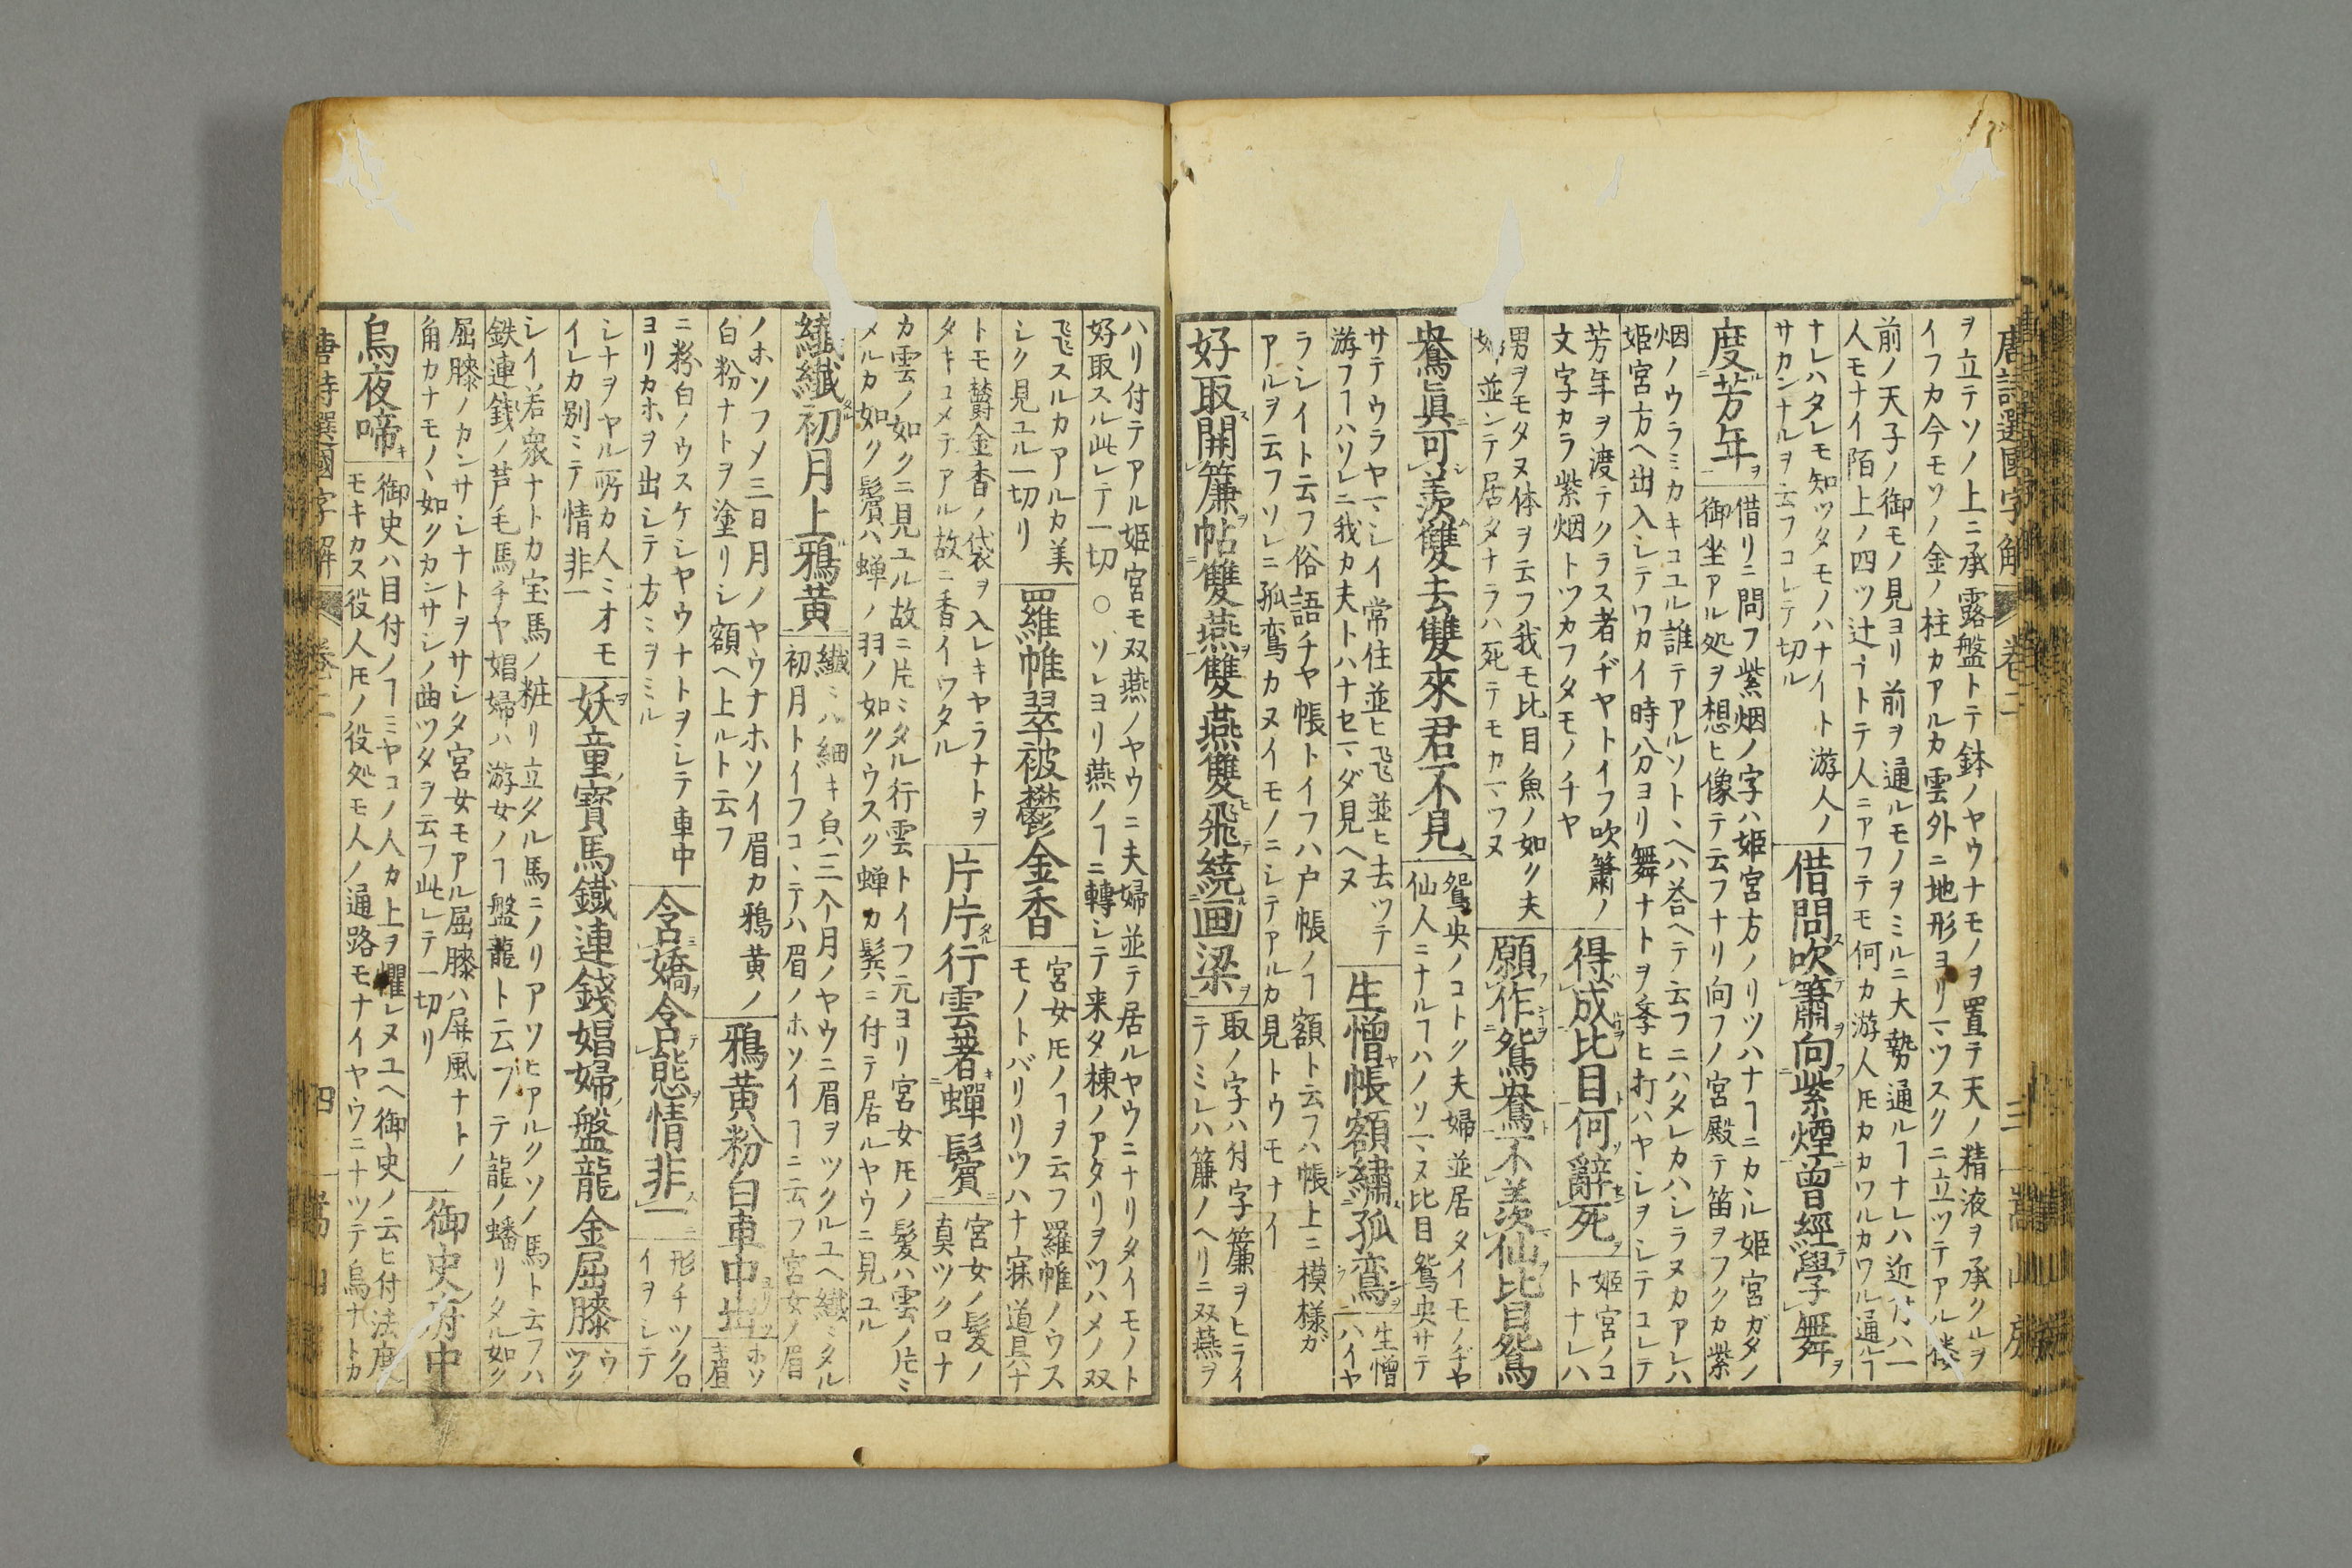 唐詩選國字解 卷二 三 嵩山房
ヲ立テソノ上ニ承露盤トテ鉢ノヤウナモノヲ置テ天ノ精液ヲ承クルヲ
イフカ今モソノ金ノ柱カアルカ雲外ニ地形ヨリマツスクニ立ツテアル
前ノ天子ノ御モノ見ヨリ前ヲ通ルモノヲミルニ大勢通ルヿナレハ近付ハ一
人モナイ陌上ノ四ツ辻ヿトテ人ニアフテモ何カ游人𪜈カカワルカワル通ルヿ
ナレハタレモ知ツタモノハナイト游人ノ
サカンナルヲ云フコレテ切ル
借問吹簫向紫煙曾經學舞
度芳年
借リニ問フ紫烟ノ字ハ姫宮方ノリツハナヿニカヽル姫宮ガタノ
御坐アル処ヲ想ヒ像テ云フナリ向フノ宮殿テ笛ヲフクカ紫
烟ノウラミカキコユル誰テアルソトヽヘハ荅ヘテ云フニハタレカハシラヌカアレハ
姫宮方ヘ出入シテワカイ時分ヨリ舞ナトヲ季ヒ打ハヤシヲシテコレテ
芳年ヲ渡テクラス者ヂヤトイフ吹簫ノ
文字カラ紫烟トツカフタモノチヤ
得成比目何辭死
姫宮ノコ
トナレハ
男ヲモタヌ体ヲ云フ我モ比目魚ノ如ク夫
婦並ンテ居タナラハ死テモカマワヌ
願作鴛鴦不羨仙比目鴛
鴦眞可羨雙去雙來君不見
鴛央ノコトク夫婦並居タイモノヂヤ
仙人ニナルヿハノソマヌ比目鴛央サテ
サテウラヤマシイ常住並ヒ飛並ヒ去ツテ
游フヿハソレニ我カ夫トハナセマダ見ヘヌ
生憎帳額繡孤鸞
生憎
ハイヤ
ラシイト云フ俗語チヤ帳トイフハ户帳ノヿ額ト云フハ帳上ニ模様ガ
アルヲ云フソレニ孤鸞カヌイモノニシテアルカ見トウモナイ
好取開簾帖雙燕雙燕雙飛繞画梁
取ノ字ハ付字簾ヲヒライ
テミレハ簾ノヘリニ双燕ヲ
ハリ付テアル姫宮モ双燕ノヤウニ夫婦並テ居ルヤウニナリタイモノト
好取スル此レテ一切 ○ ソレヨリ燕ノヿニ轉シテ来タ棟ノアタリヲツハメノ双
飛スルカアルカ美
シク見ユル一切リ
羅帷翠被鬱金香
宮女𪜈ノヿヲ云フ羅帷ノウス
モノトバリリツハナ寐道具ハナ
トモ鬱金香ノ袋ヲ入レキヤラナトヲ
タキコメテアル故ニ香イワタル
片片行雲著蟬鬢
宮女ノ髪ノ
真ツクロナ
カ雲ノ如クニ見ユル故ニ片ミタル行雲トイフ元ヨリ宮女𪜈ノ髪ハ雲ノ片ミ
タルカ如ク鬢ハ蝉ノ羽ノ如クウスク蝉カ髪ニ付テ居ルヤウニ見ユル
纎纎初月上鴉黄
纎ミハ細キ㒵三个月ノヤウニ眉ヲツクルユヘ纎ミタル
初月トイフコヽテハ眉ノホソイヿニ云フ宮女ノ眉
ノホソフメ三日月ノヤウナホソイ眉カ鴉黄ノ
白粉ナトヲ塗リシ額ヘ上ルト云フ
鴉黄粉白車中出
ホソ
キ眉
ニ粉白ノウスケシヤウナトヲシテ車中
ヨリカホヲ出シテ方ミヲミル
含嬌含態情非一
形チツクロ
イヲシテ
シナヲヤル所カ人ミオモ
イレカ別ミテ情非一
妖童寶馬鐵連錢娼婦盤龍金屈膝
ウ
ツク
シイ若衆ナトカ宝馬ノ粧リ立タル馬ニノリアソヒアルクソノ馬ト云フハ
鉄連銭ノ芦毛馬チヤ娼婦ハ游女ノヿ盤龍ト云フテ龍ノ蟠リタル如ク
屈膝ノカンサシナトヲサシタ宮女モアル屈膝ハ屏風ナトノ
角カナモノヽ如クカンサシノ曲ツタヲ云フ此レテ一切リ
御史府中
烏夜啼
御史ハ目付ノヿミヤコノ人カ上ヲ懼レヌユヘ御史ノ云ヒ付法度
モキカス役人𪜈ノ役処モ人ノ通路モナイヤウニナツテ烏ナトカ
唐詩選國字解 卷二 四 嵩山